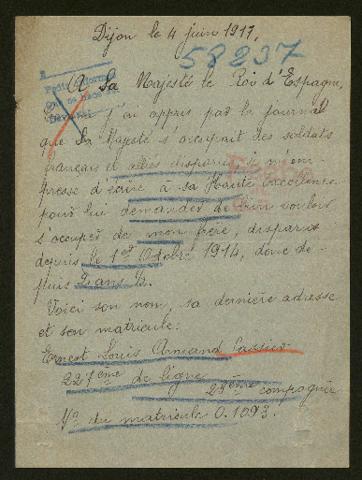 Dijon le 4 juin 1917,
58237
A Sa Majesté le Roi d'Espagne,
j'ai appris par le journal
que Sa Majesté s'occupait des soldats
français et alliés disparus, je m'em-
presse d'écrire à sa Haute Excellence
pour lui demander de bien vouloir
s'occuper de mon frère, disparus
depuis le 1er Octobre 1914, donc de-
puis 2 ans ½.
Voici son nom, sa dernière adresse
et son matricule:
Ernest Louis Armand
227ème de ligne
28ème compagnie
No du matricule 0.1093.